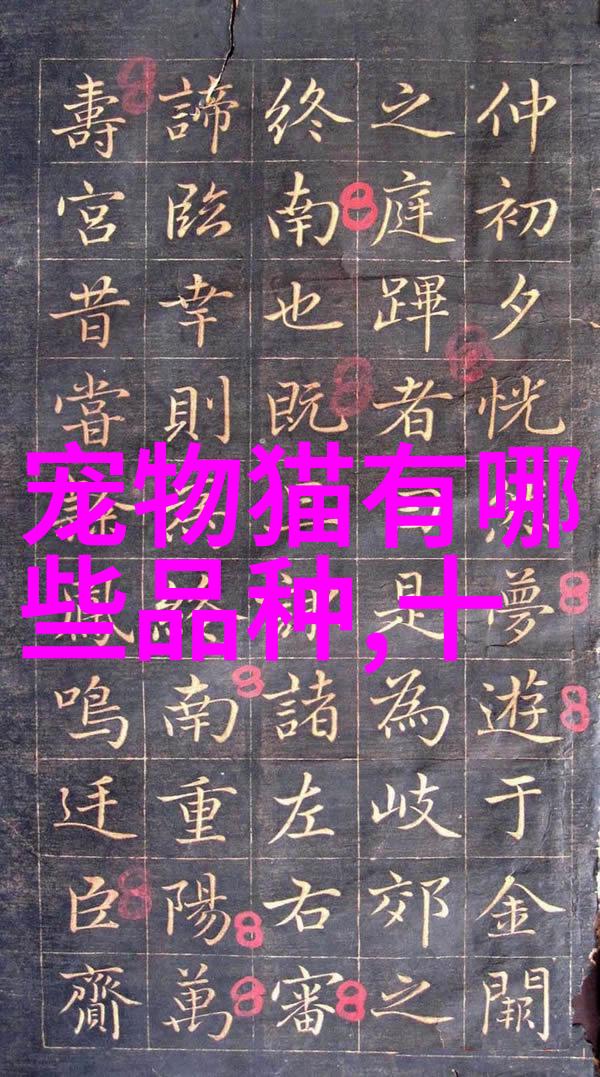 宠物猫有哪
些品种,十
仲初夕恍夢遊于金闕
之庭蹕者是為岐郊之
終南也既諸左右審
諦臨幸則為終南重陽萬
壽宮昔嘗鳳鳴迋臣齎